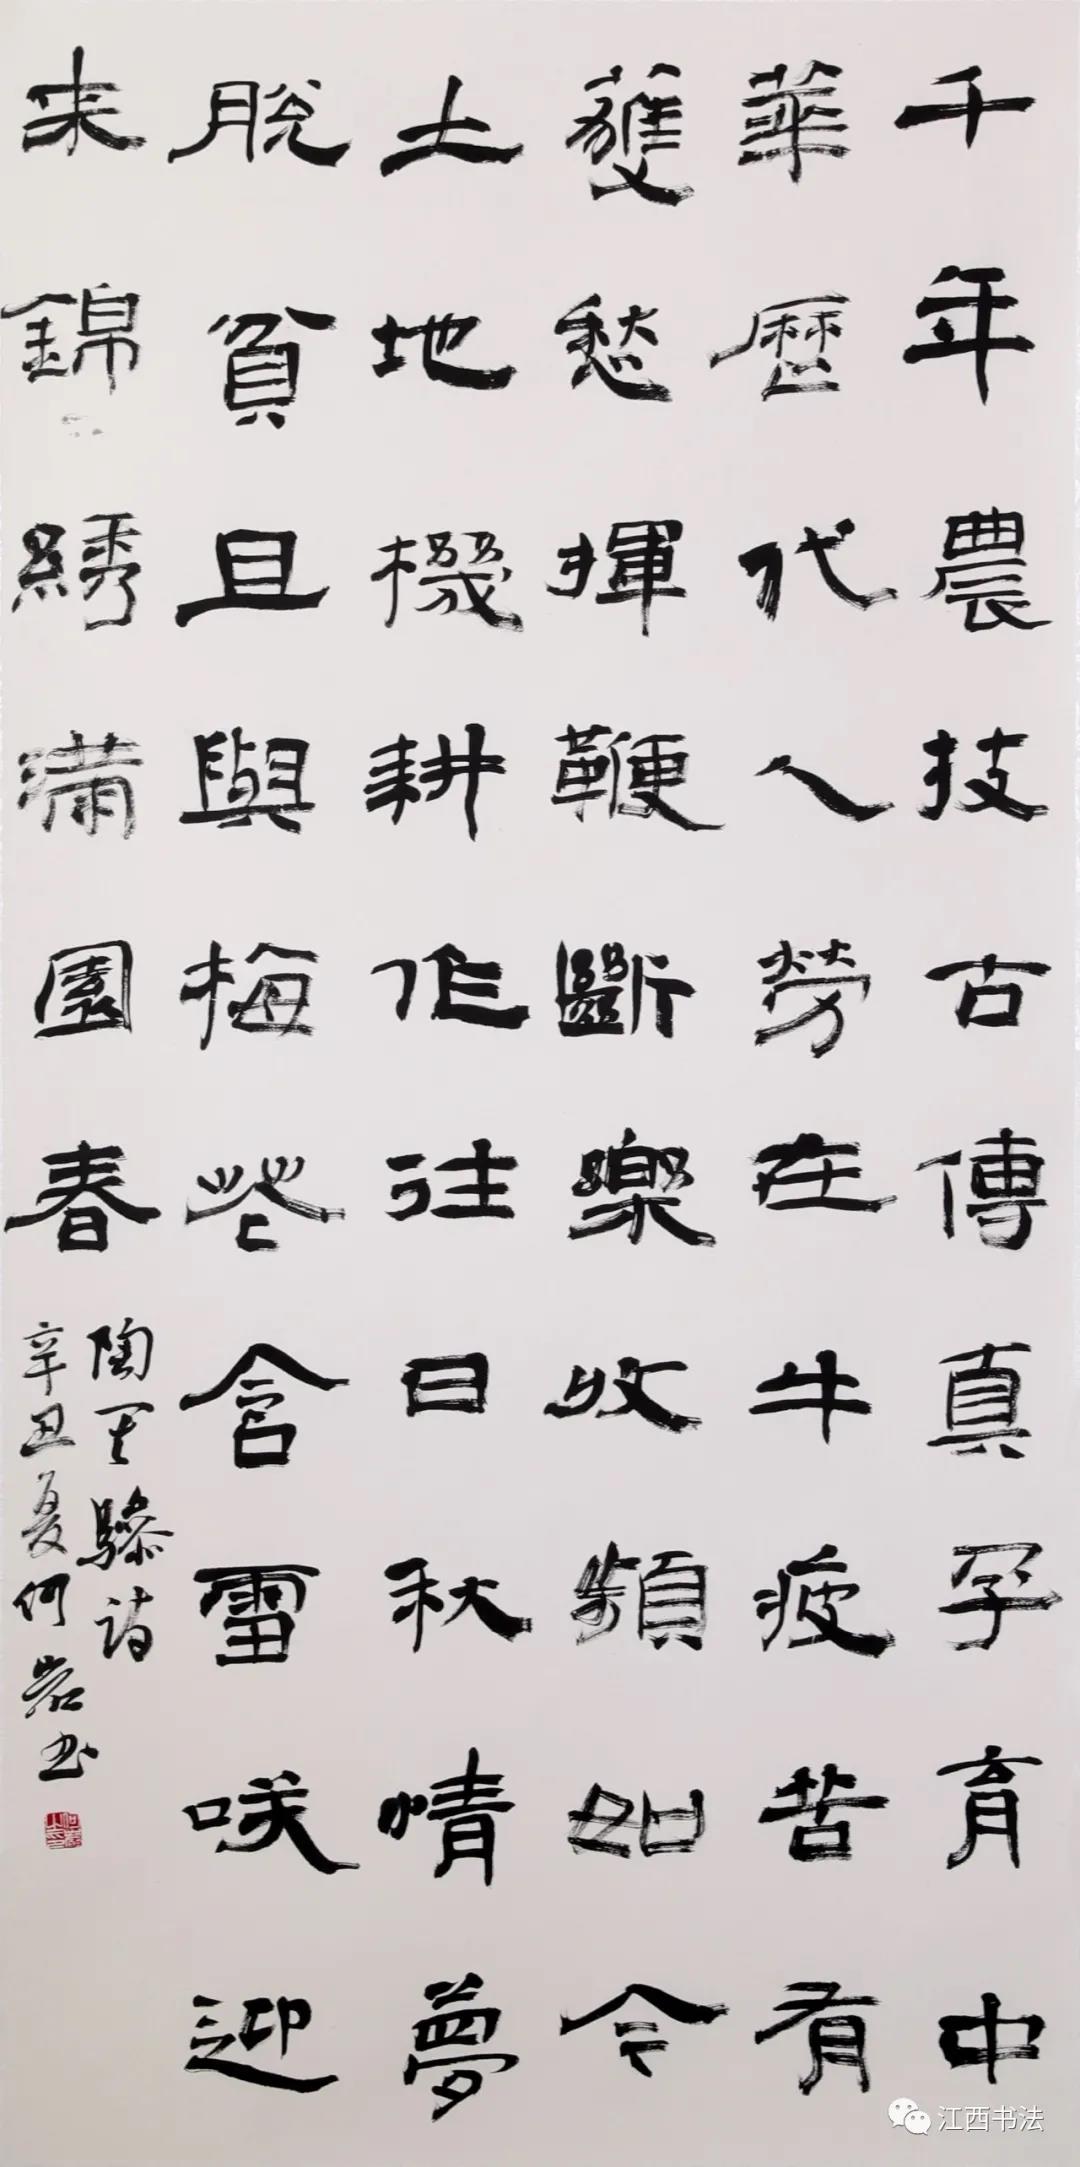 千年農技古傳真孕育中
華歷代人勞在牛疲苦有
蒦愁揮鞭斷樂收頻如今
土地機耕作往日秋情夢
脫貧且與梅花含雪咲迎
来錦綉滿園春
陶詩
辛丑夏何岩书
江西书法